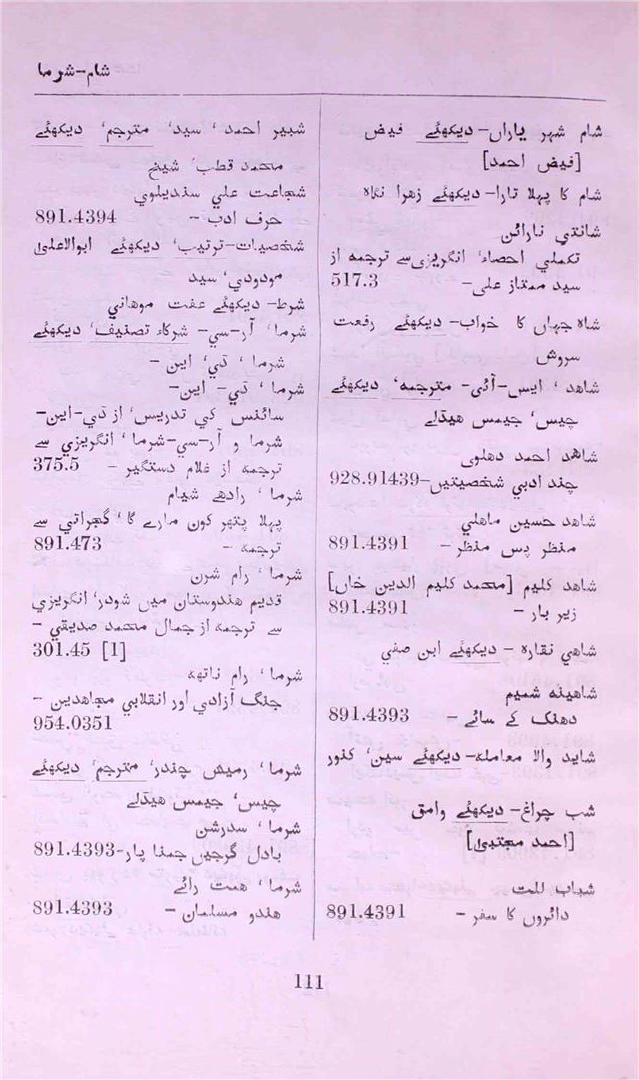 شام-شرما
شام شہر یاراں- دیکھئے فیض
[فیض احمد]
شام کا پہلا تارا- دیکھئے زھرا نگاہ
شانتي نارائن
تکملي احصاء، انگریزي سے ترجمہ از
سید ممتاز علی- 517.3
شاہ جہاں کا خواب- دیکھئے رفعت
سروش
شاھد، ایس-آئی- مترجمہ، دیکھئے
چیس، جیمس ھیڈلے
شاھد احمد دھلوی
چند ادبي شخصیتیں- 928.91439
شاھد حسین ماھلي
منظر پس منظر- 891.4391
شاھد کلیم [محمد کلیم الدین خاں]
زیر بار- 891.4391
شاھي نقارہ - دیکھئے ابن صفي
شاھینہ شمیم
دھنک کے سائے- 891.4393
شاید والا معاملہ- دیکھئے سین، کنور
شب چراغ- دیکھئے وامق
[احمد مجتبیٰ]
شباب للت
دائروں کا سفر - 891.4391
شبیر احمد، سید، مترجم، دیکھئے
محمد قطب، شیخ
شجاعت علي سندیلوي
حرف ادب- 891.4394
شخصیات- ترتیب، دیکھئے ابوالاعلیٰ
مودودي، سید
شرط- دیکھئے عفت موھاني
شرما، آر-سي- شرکاء تصنیف، دیکھئے
شرما، ٹي، این-
شرما، ٹي- این-
سائنس کي تدریس، از ٹي-این-
شرما و آر-سي-شرما، انگریزي سے
ترجمہ از غلام دستگیر - 375.5
شرما، رادھے شیام
پہلا پتھر کون مارے گا، گجراتي سے
ترجمہ- 891.473
شرما، رام شرن
قدیم ھندوستان میں شودر، انگریزي
سے ترجمہ از جمال محمد صدیقي-
301.45 [1]
شرما، رام ناتھ
جنگ آزادي اور انقلابي مجاھدین-
954.0351
شرما، رمیش چندر، مترجم، دیکھئے
چیس، جیمس ھیڈلے
شرما، سدرشن
بادل گرجیں جمنا پار- 891.4393
شرما، ھمت رائے
ھندو مسلمان- 891.4393
111